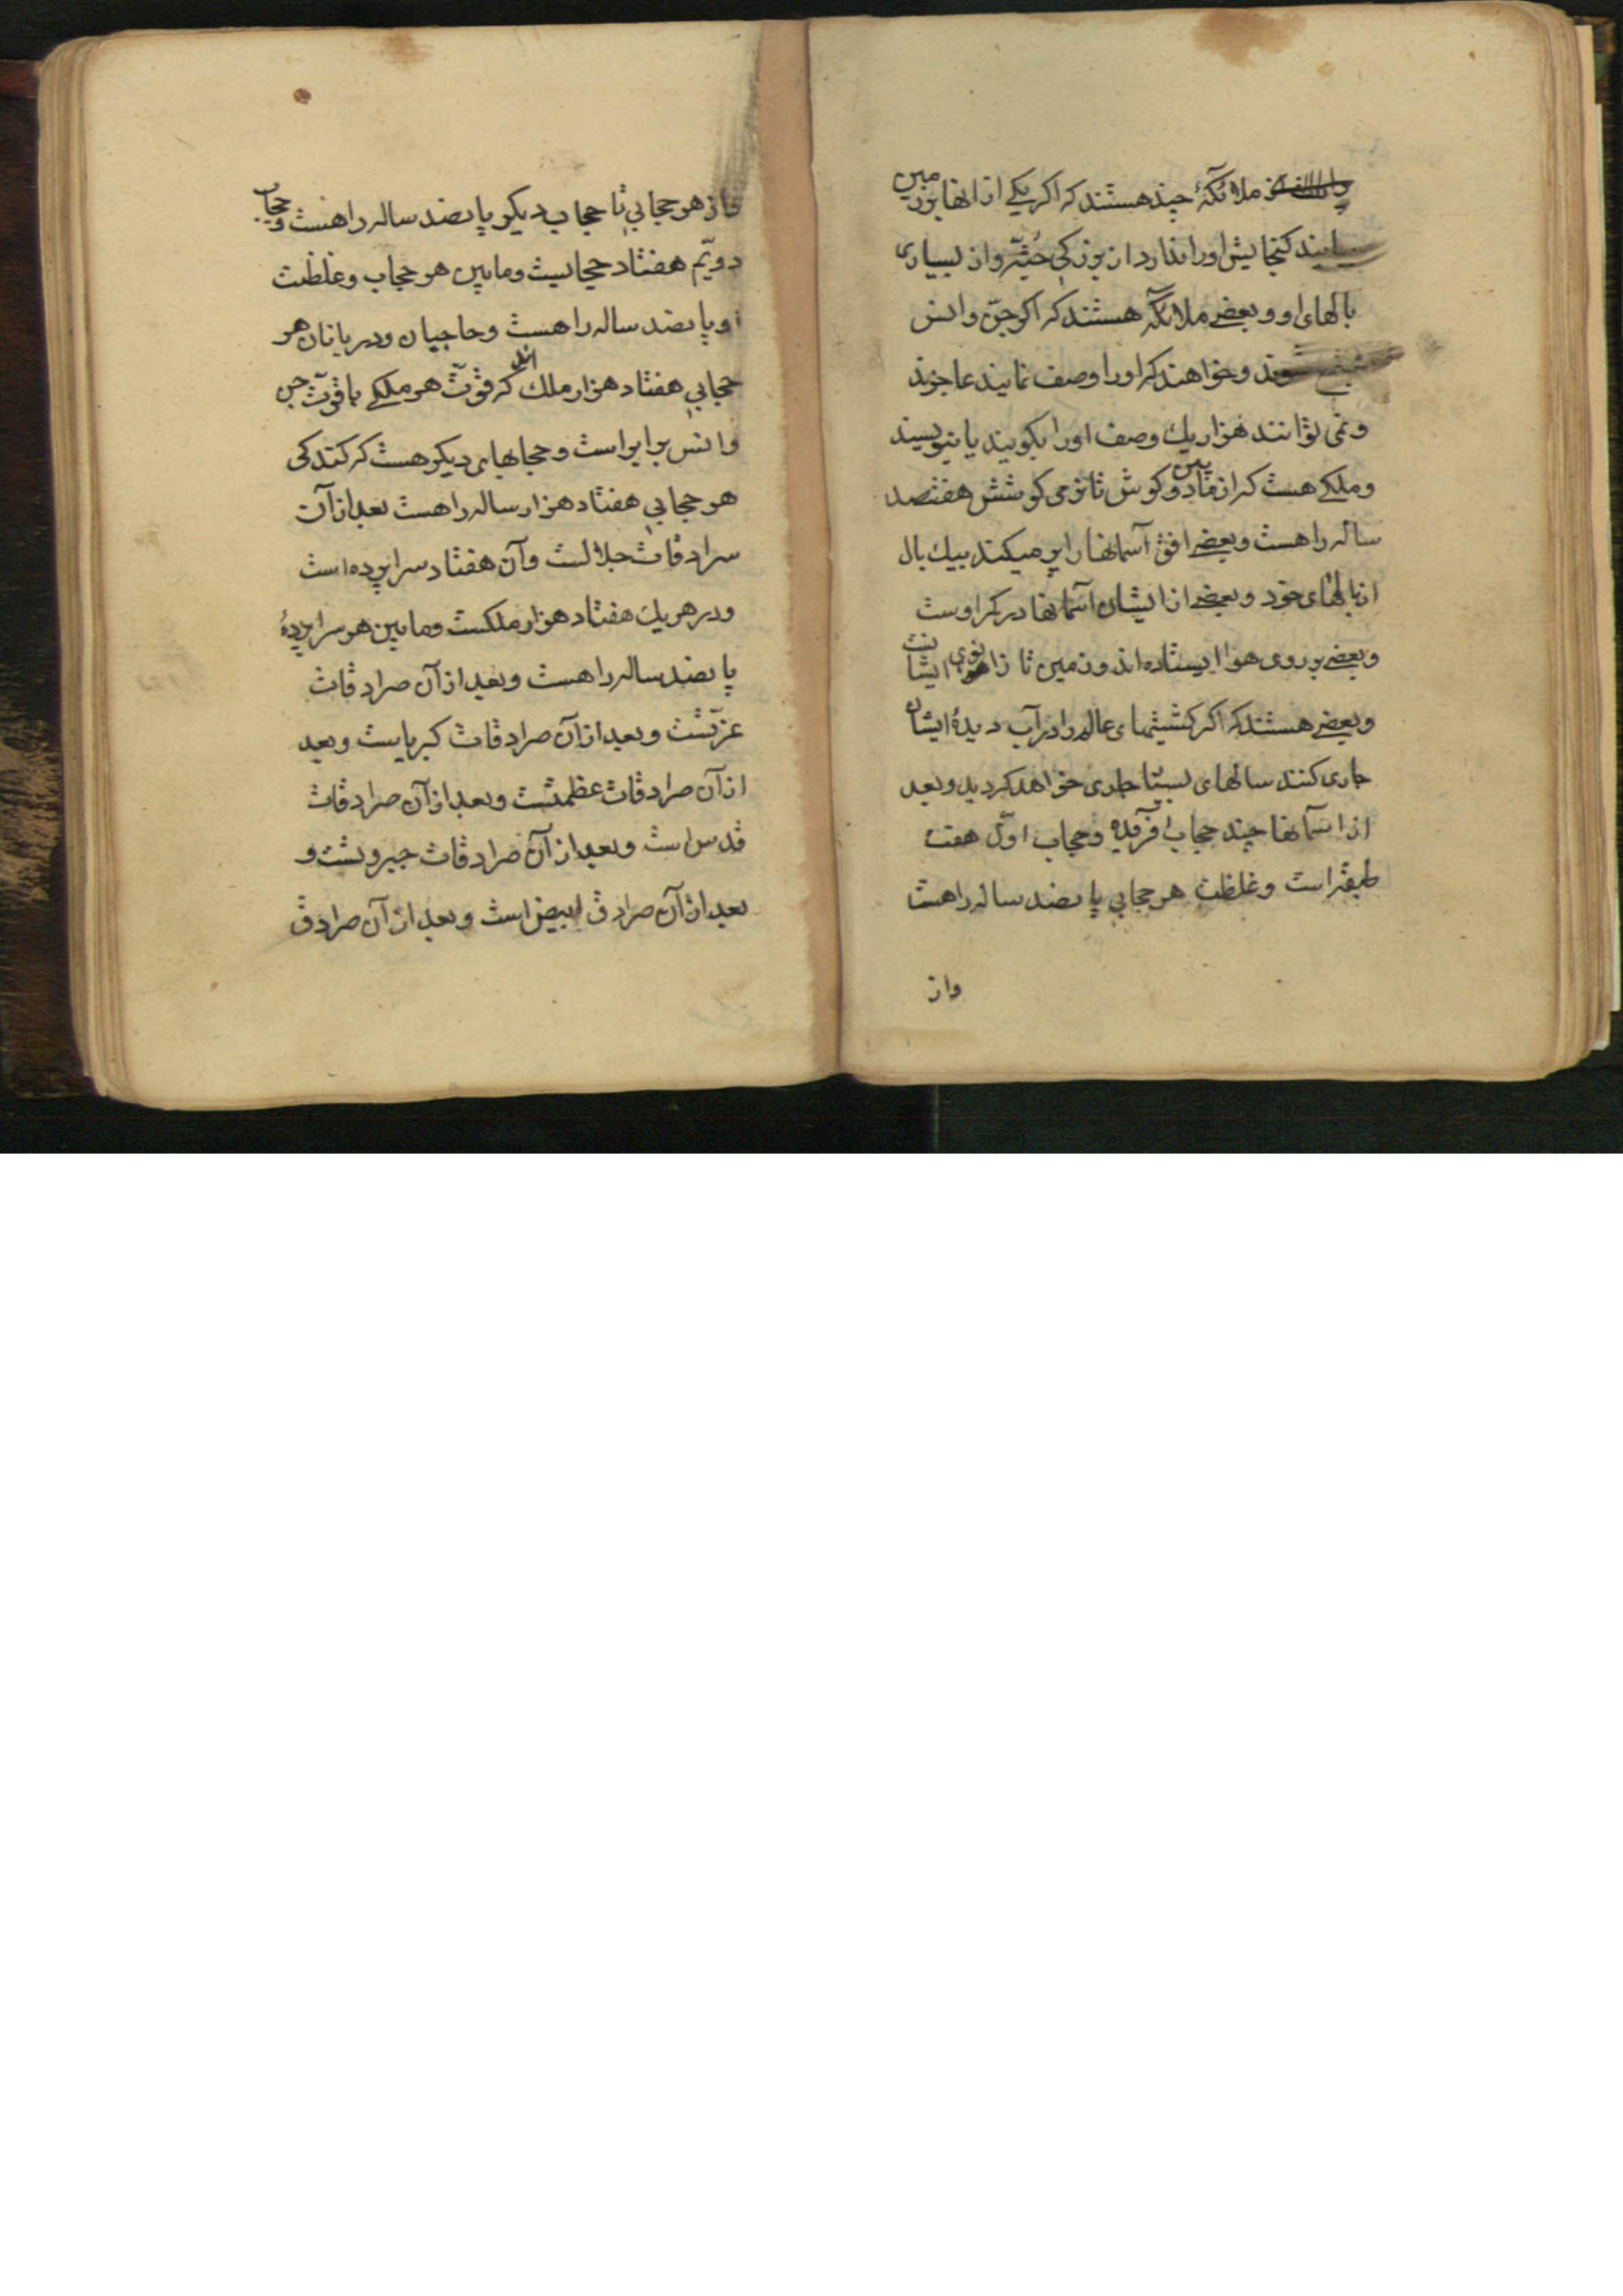 ملائکهٔ چند هستند که اکر یکے از انها بزمین
آیند کنجایش او را ندارد از بزرکی جثّه و از بسیاری
بالهای او و بعضے ملائکه هستند که اکر جنّ و انس
جمع شوند و خواهند که او را وصف نمایند عاجزند
و نمی توانند هزار یك وصف او را بکویند یا بنویسند
و ملکے هست که از مابین دو کوش تا نرمی کوشش هفتصد
ساله راهست و بعضے افق آسمانها را پر میکند بیك بال
از بالهای خود و بعضے از ایشان آسمانها در کمر اوست
و بعضے بر روی هوا ایستاده اند و زمین تا زانوی ایشانست
و بعضے هستند که اکر کشیتهای عالم را در آب دیدهٔ ایشان
جاری کنند سالهای بسیار جاری خواهد کردید و بعد
از اسمانها چند حجاب آفریده و حجاب اوّل هفت
طبقه است و غلظت هر حجابی پانصد ساله راهست
واز
و از هر حجابی تا حجاب دیکر پانصد ساله راهست و حجاب
دویّم هفتاد حجابست و مابین هر حجاب و غلظت
او پانصد ساله راهست و حاجبان و دربانان هر
حجابی هفتاد هزار ملك اند که قوّت هر ملکے با قوّت جن
و انس برابر است و حجابهای دیکر هست که کندکی
هر حجابی هفتاد هزار ساله راهست بعد از آن
سرادقات جلالست و آن هفتاد سراپرده است
و در هر یك هفتاد هزار ملکست و مابین هر سراپردهٔ
پانصد ساله راهست و بعد از آن صرادقات
عزّتست و بعد از آن صرادقات کبریاست و بعد
از آن صرادقات عظمتست و بعد از آن صرادقات
قدس است و بعد از آن صرادقات جبروتست و
بعد از آن صرادق ابیض است و بعد از آن صرادق